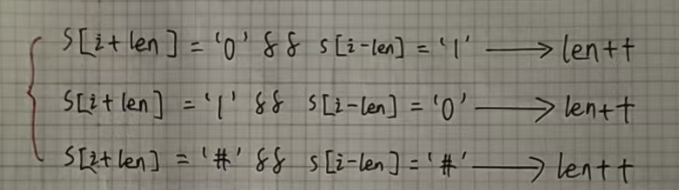 s[i+len] = '0' && s[i-len] = '1' ⟶ len++
s[i+len] = '1' && s[i-len] = '0' ⟶ len++
s[i+len] = '#' && s[i-len] = '#' ⟶ len++